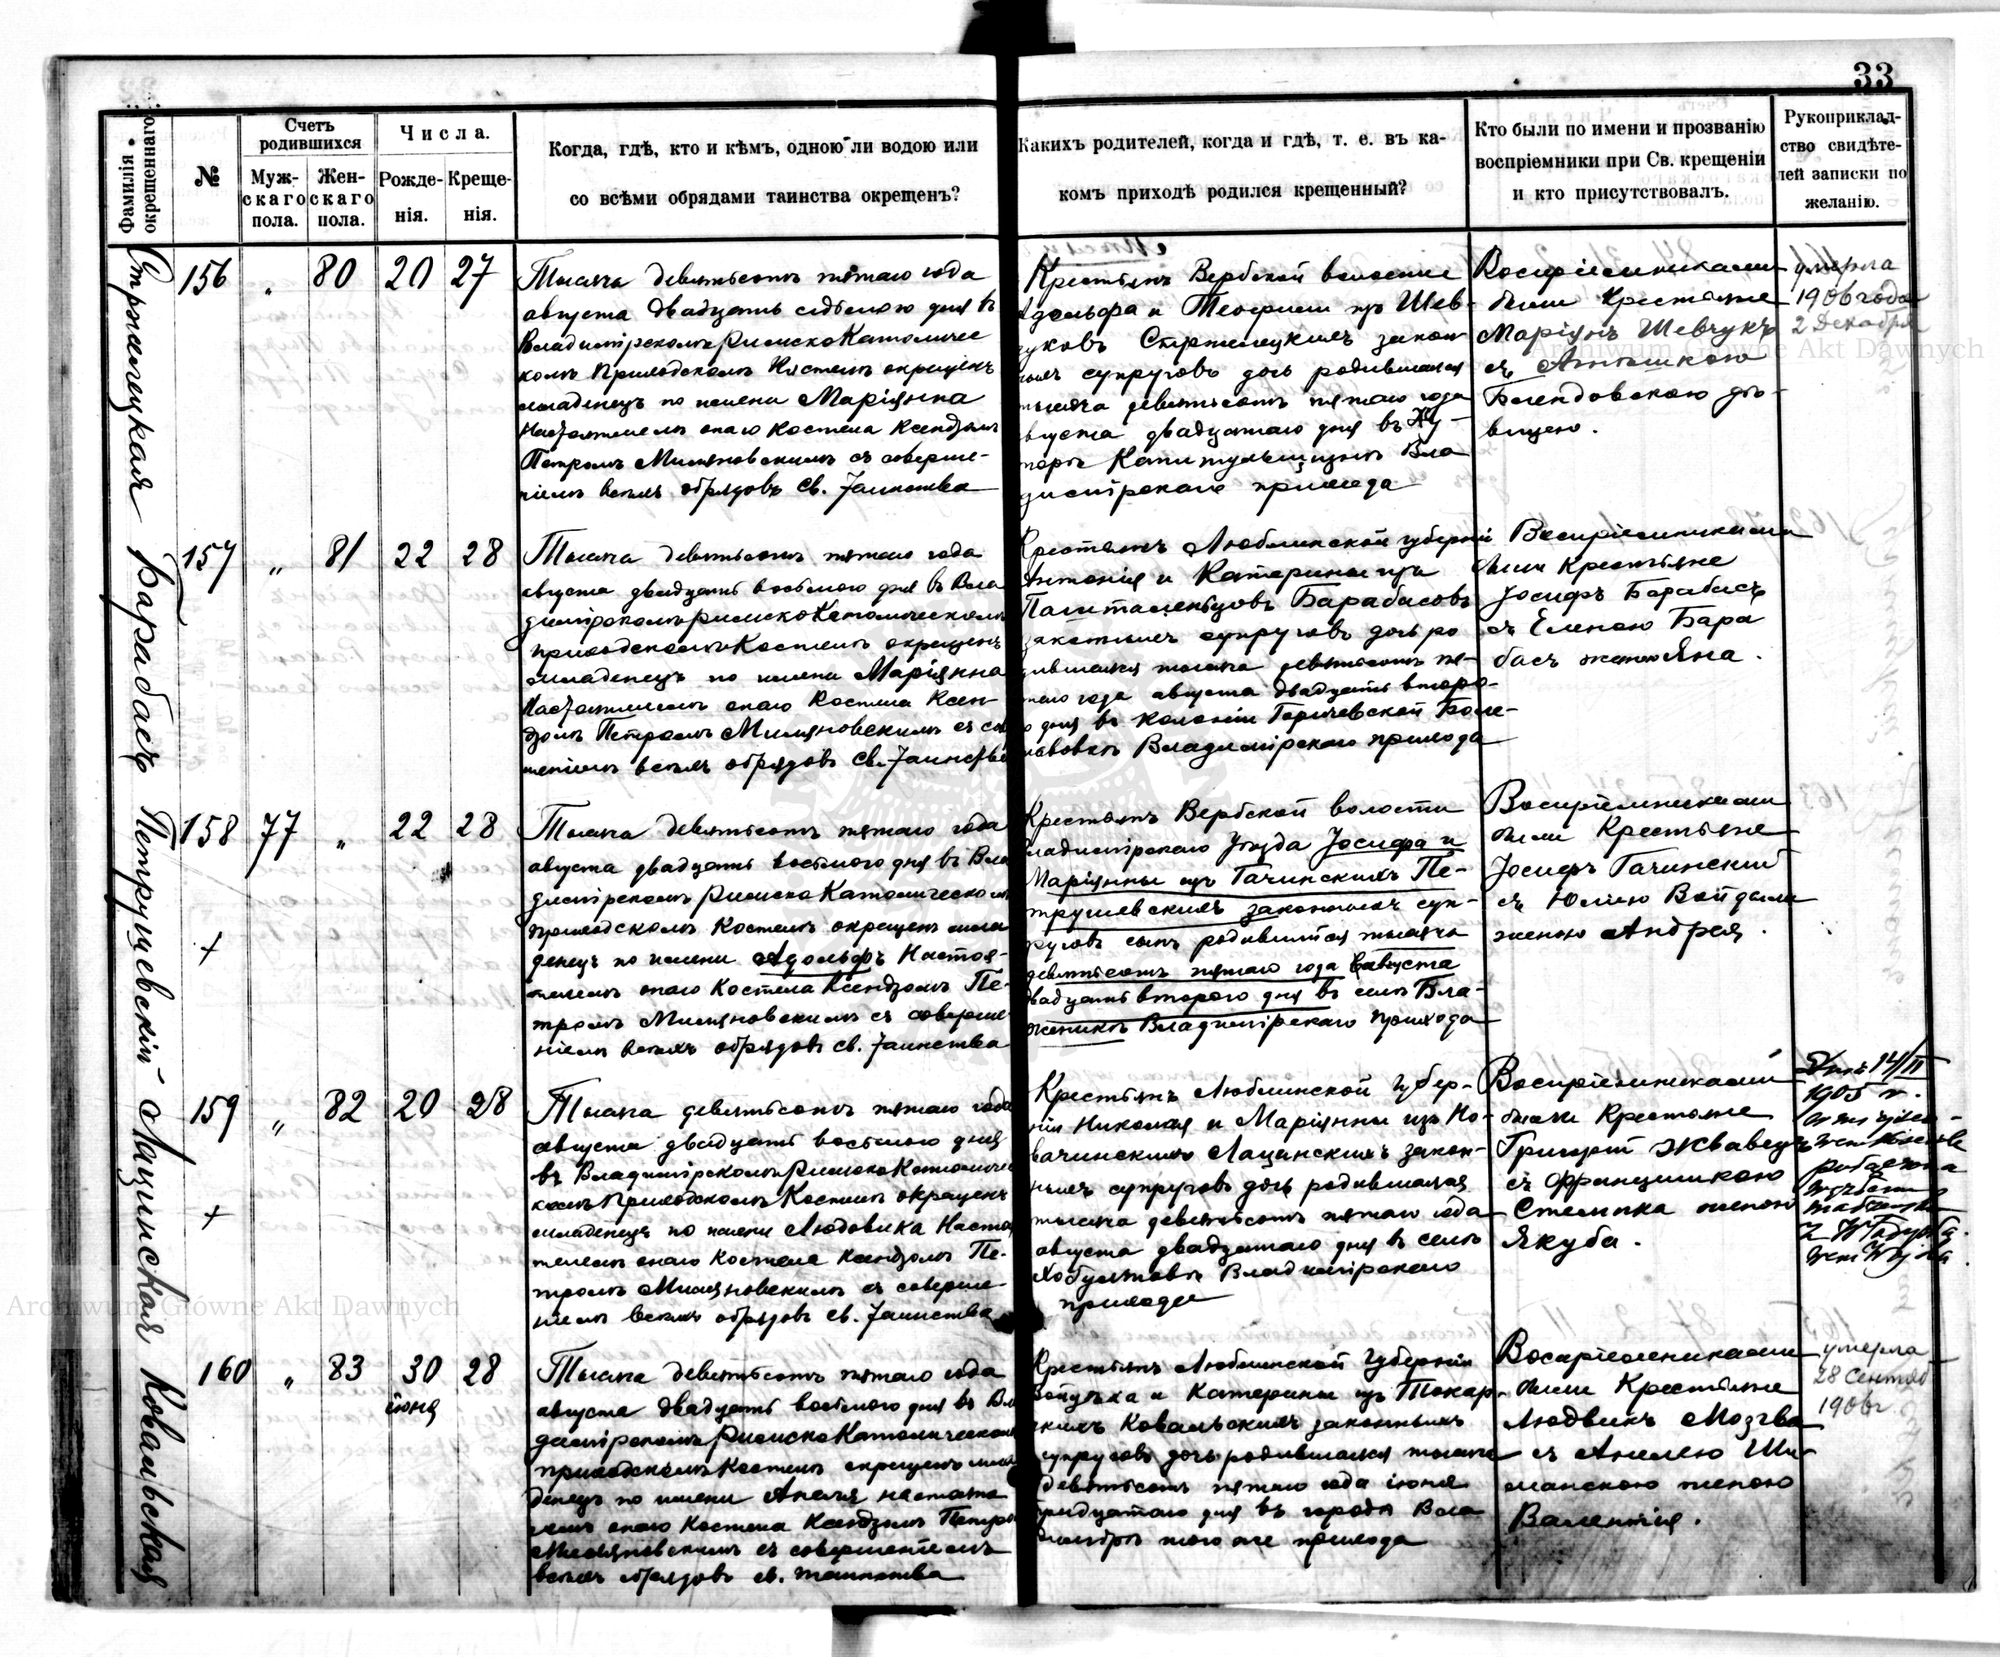 33
Фамилія окрещеннаго:
№
Счетъ родившихся
Мужскаго пола.
Женскаго пола.
Числа.
Рожденія.
Крещенія.
Когда, гдѣ, кто и кѣмъ, одною ли водою или
со всѣми обрядами таинства окрещенъ?
Какихъ родителей, когда и гдѣ, т. е. въ ка-
комъ приходѣ родился крещенный?
Кто были по имени и прозванію
воспріемники при Св. крещеніи
и кто присутствовалъ.
Рукоприклад-
ство свидѣте-
лей записки по
желанію.
Стржелецкая
156 „ 80 20 27
Тысяча девятьсотъ пятаго года
августа двадцать седьмого дня въ
Владимірскомъ Римско Католичес
комъ Приходскомъ Костелѣ окрещенъ
младенецъ по имени Маріянна
Настоятелемъ онаго Костела Ксендзомъ
Петромъ Миляновскимъ съ соверше-
ніемъ всѣхъ обрядовъ Св. Таинства
Крестьянъ Вербской волости
Адольфа и Теофили изъ Шев-
чуковъ Стржелецкихъ закон-
ныхъ супруговъ дочь родившаяся
тысяча девятьсотъ пятаго года
августа двадцатаго дня въ Ху-
торѣ Капитульщизнѣ Вла
димірскаго прихода
Воспріемниками
были Крестьяне
Маріянъ Шевчукъ
съ Антониною
Блендовскою дѣ-
вицею.
умерла
1906 года
2 Декабря
Archiwum Główne Akt Dawnych
Барабасъ
157 „ 81 22 28
Тысяча девятьсотъ пятаго года
августа двадцать восьмого дня въ Вла
димірскомъ Римско Католическомъ
приходскомъ Костелѣ окрещенъ
младенецъ по имени Маріянна
Настоятелемъ онаго Костела Ксен-
дзомъ Петромъ Миляновскимъ съ сов
шеніемъ всѣхъ обрядовъ Св. Таинства
Крестьянъ Люблинской губерніи
Антонія и Катерины изъ
Барабасовъ
законныхъ супруговъ дочь ро
дившаяся тысяча девятьсотъ пя-
таго года августа двадцать второ-
го дня въ колоніи
Владимірскаго прихода
Воспріемниками
были Крестьяне
Іосифъ Барабасъ
съ Еленою Бара
басъ женою Яна.
Петрушевскій
158 77 „ 22 28
+
Тысяча девятьсотъ пятаго года
августа двадцать восьмого дня въ Вла
димірскомъ Римско Католическомъ
приходскомъ Костелѣ окрещенъ мла
денецъ по имени Адольфъ Настоя-
телемъ онаго Костела Ксендзомъ Пе-
тромъ Миляновскимъ съ соверше
ніемъ всѣхъ обрядовъ св. Таинства
Крестьянъ Вербской волости
Владимірскаго Уѣзда Іосифа и
Маріянны изъ Гачинскихъ Пе-
трушевскихъ законныхъ суп-
руговъ сынъ родившійся тысяча
девятьсотъ пятаго года августа
двадцать второго дня въ селѣ Бла-
женикъ Владимірскаго прихода
Воспріемниками
были Крестьяне
Іосифъ Гачинскій
съ Юліею Войдыли
женою Андрея.
Лацинская
159 „ 82 20 28
+
Тысяча девятьсотъ пятаго года
августа двадцать восьмого дня
въ Владимірскомъ Римско Католиче
комъ Приходскомъ Костелѣ окрещенъ
младенецъ по имени Людовика Настоя
телемъ онаго Костела Ксендзомъ Пе-
тромъ Миляновскимъ съ соверше
ніемъ всѣхъ обрядовъ св. Таинства
Крестьянъ Люблинской Губер-
ніи Николая и Маріянны изъ Но-
вачинскихъ Лацинскихъ закон-
ныхъ супруговъ дочь родившаяся
тысяча девятьсотъ пятаго года
августа двадцатаго дня въ селѣ
Хобултовѣ Владимірскаго
прихода
Воспріемниками
были Крестьяне
Григорій Жвавецъ
съ Францишкою
Стельмка женою
Якуба.
14/II
Archiwum Główne Akt Dawnych
Ковальская
160 „ 83 30 28
іюня
Тысяча девятьсотъ пятаго года
августа двадцать восьмого дня въ Вла
димірскомъ Римско Католическомъ
приходскомъ Костелѣ окрещенъ мла
денецъ по имени Анеля настояте
лемъ онаго Костела Ксендзомъ Петро
Миляновскимъ съ совершеніемъ
всѣхъ обрядовъ св. таинства
Крестьянъ Люблинской Губерніи
Войцѣха и Катерины изъ Токар-
скихъ Ковальскихъ законныхъ
супруговъ дочь родившаяся тысяча
девятьсотъ пятаго года іюня
тридцатаго дня въ городѣ Вла
димірѣ того же прихода
Воспріемниками
были Крестьяне
Людвикъ Мозгва
съ Анелею Ши-
манскою женою
Валентія.
умерла
28 Сентяб
1906 г